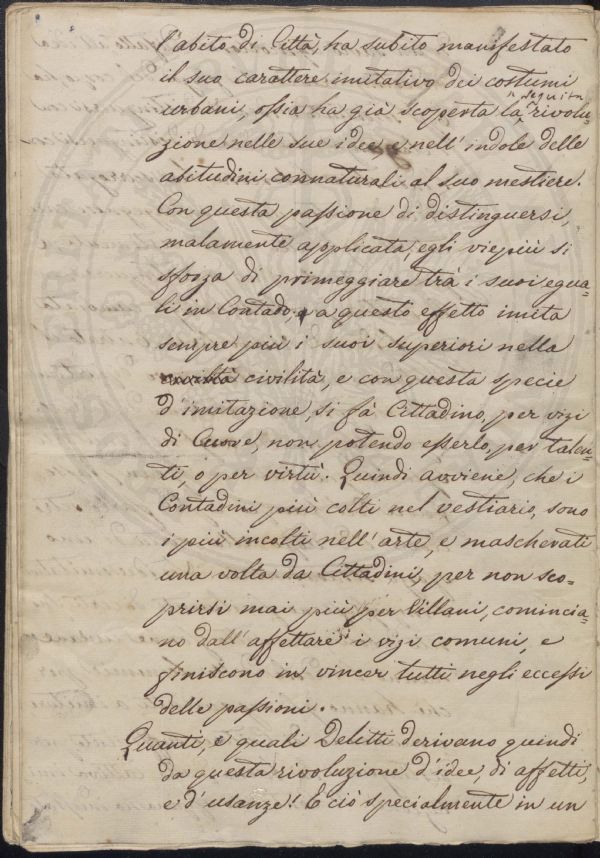 l'abito di Città, ha subito manifestato
il suo carattere imitativo dei costumi
urbani, ossia ha già scoperta la seguita rivolu-
zione nelle sue idee, e nell'indole delle
abitudini connaturali al suo mestiere.
Con questa passione di distinguersi,
malamente applicata, egli viepiù si
sforza di primeggiare trà i suoi egua-
li in Contado, e a questo effetto imita
sempre più i suoi superiori nella
civiltà civilità, e con questa specie
d'imitazione, si fà Cittadino, per vizi
di Cuore, non potendo esserlo, per talen-
ti, o per virtù. Quindi avviene, che i
Contadini più colti nel vestiario, sono
i più incolti nell'arte, e mascherati
una volta da Cittadini, per non sco-
prirsi mai più per Villani, comincia-
no dall'affettare i vizi comuni, e
finiscono in vincer tutti negli eccessi
delle passioni.
Quanti, e quali Delitti derivano quindi
da questa rivoluzione d'idee, di affetti,
e d'usanze! E ciò specialmente in un